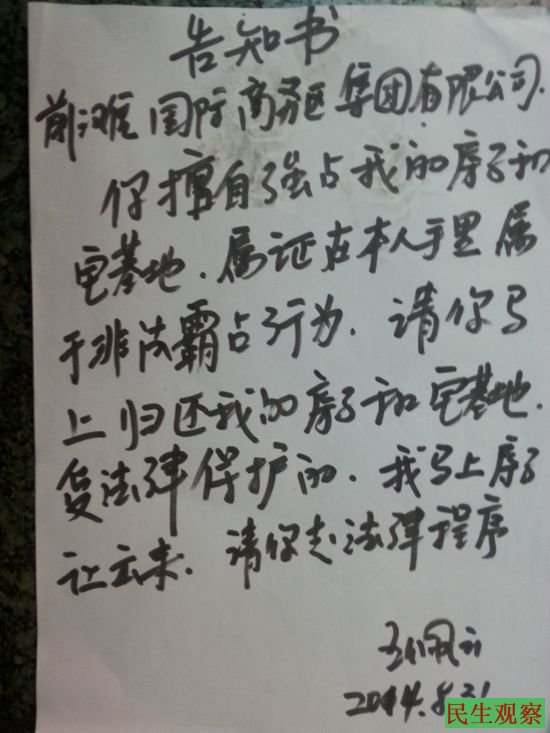 告知书
前滩国际商务区集团有限公司.
你擅自强占我的房子和
宅基地.房证在本人手里属
于非法霸占行为.请你马
上归还我的房子和宅基地.
受法律保护的.我马上房子
让出来.请你走法律程序
2014.8.31
民生观察